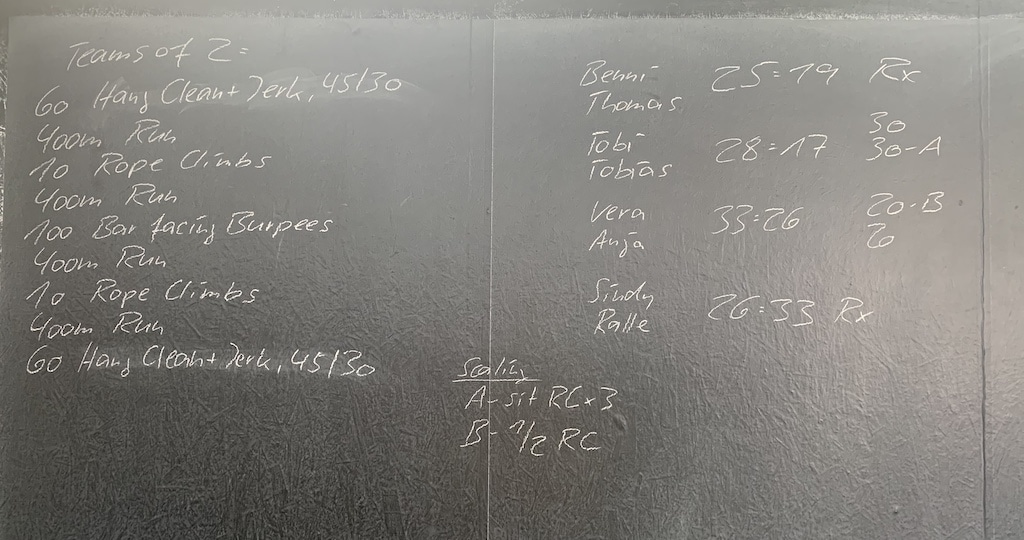 Teams of 2:
60 Hang Clean + Jerk, 45/30
400m Run
10 Rope Climbs
400m Run
100 Bar facing Burpees
400m Run
10 Rope Climbs
400m Run
60 Hang Clean + Jerk, 45/30
Benni 25:19 Rx
Thomas
30
Tobi 28:17 30-A
Tobias
Vera 33:26 20-B
Anja 20
Sindy 26:33 Rx
Ralle
Scaling
A- sit RC x 3
B- 1/2 RC